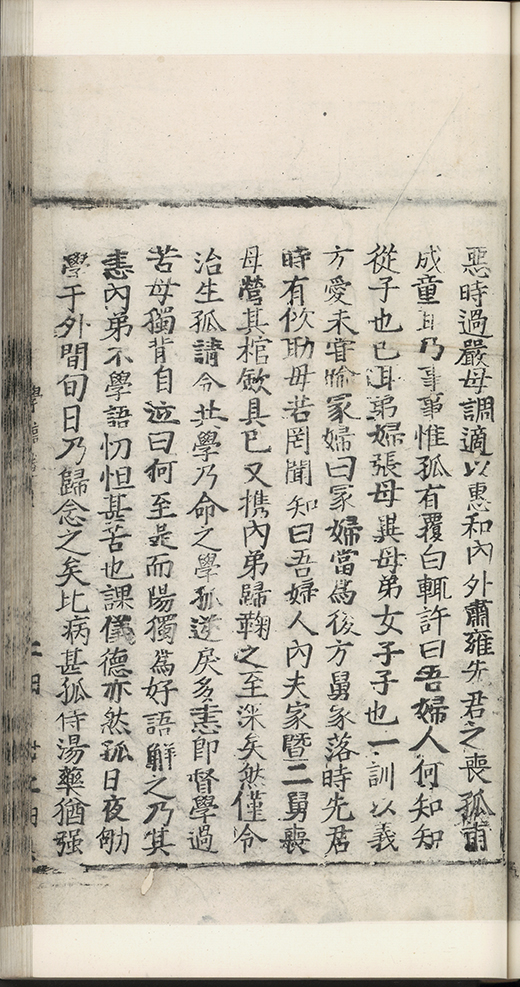 惡時過嚴母調適以惠和內外肅雍先君之喪孤甫
成童耳乃事事惟孤有覆白輒許曰吾婦人何知知
從子也已耳弟婦張母異母弟女子子也一訓以義
方愛未甞喻冢婦曰冢婦當爲後方舅家落時先君
時有佽助母若罔聞知曰吾婦人內夫家暨二舅喪
母營其棺斂具已又携內弟歸鞠之至深矣然僅令
治生孤請令共學乃命之學孤遂戾多恚即督學過
苦母獨背自泣曰何至是而陽獨爲好語解之乃其
恚內弟不學語忉怛甚苦也課儀德亦然孤日夜劬
學于外間旬日乃歸念之矣比病甚孤侍湯藥猶强